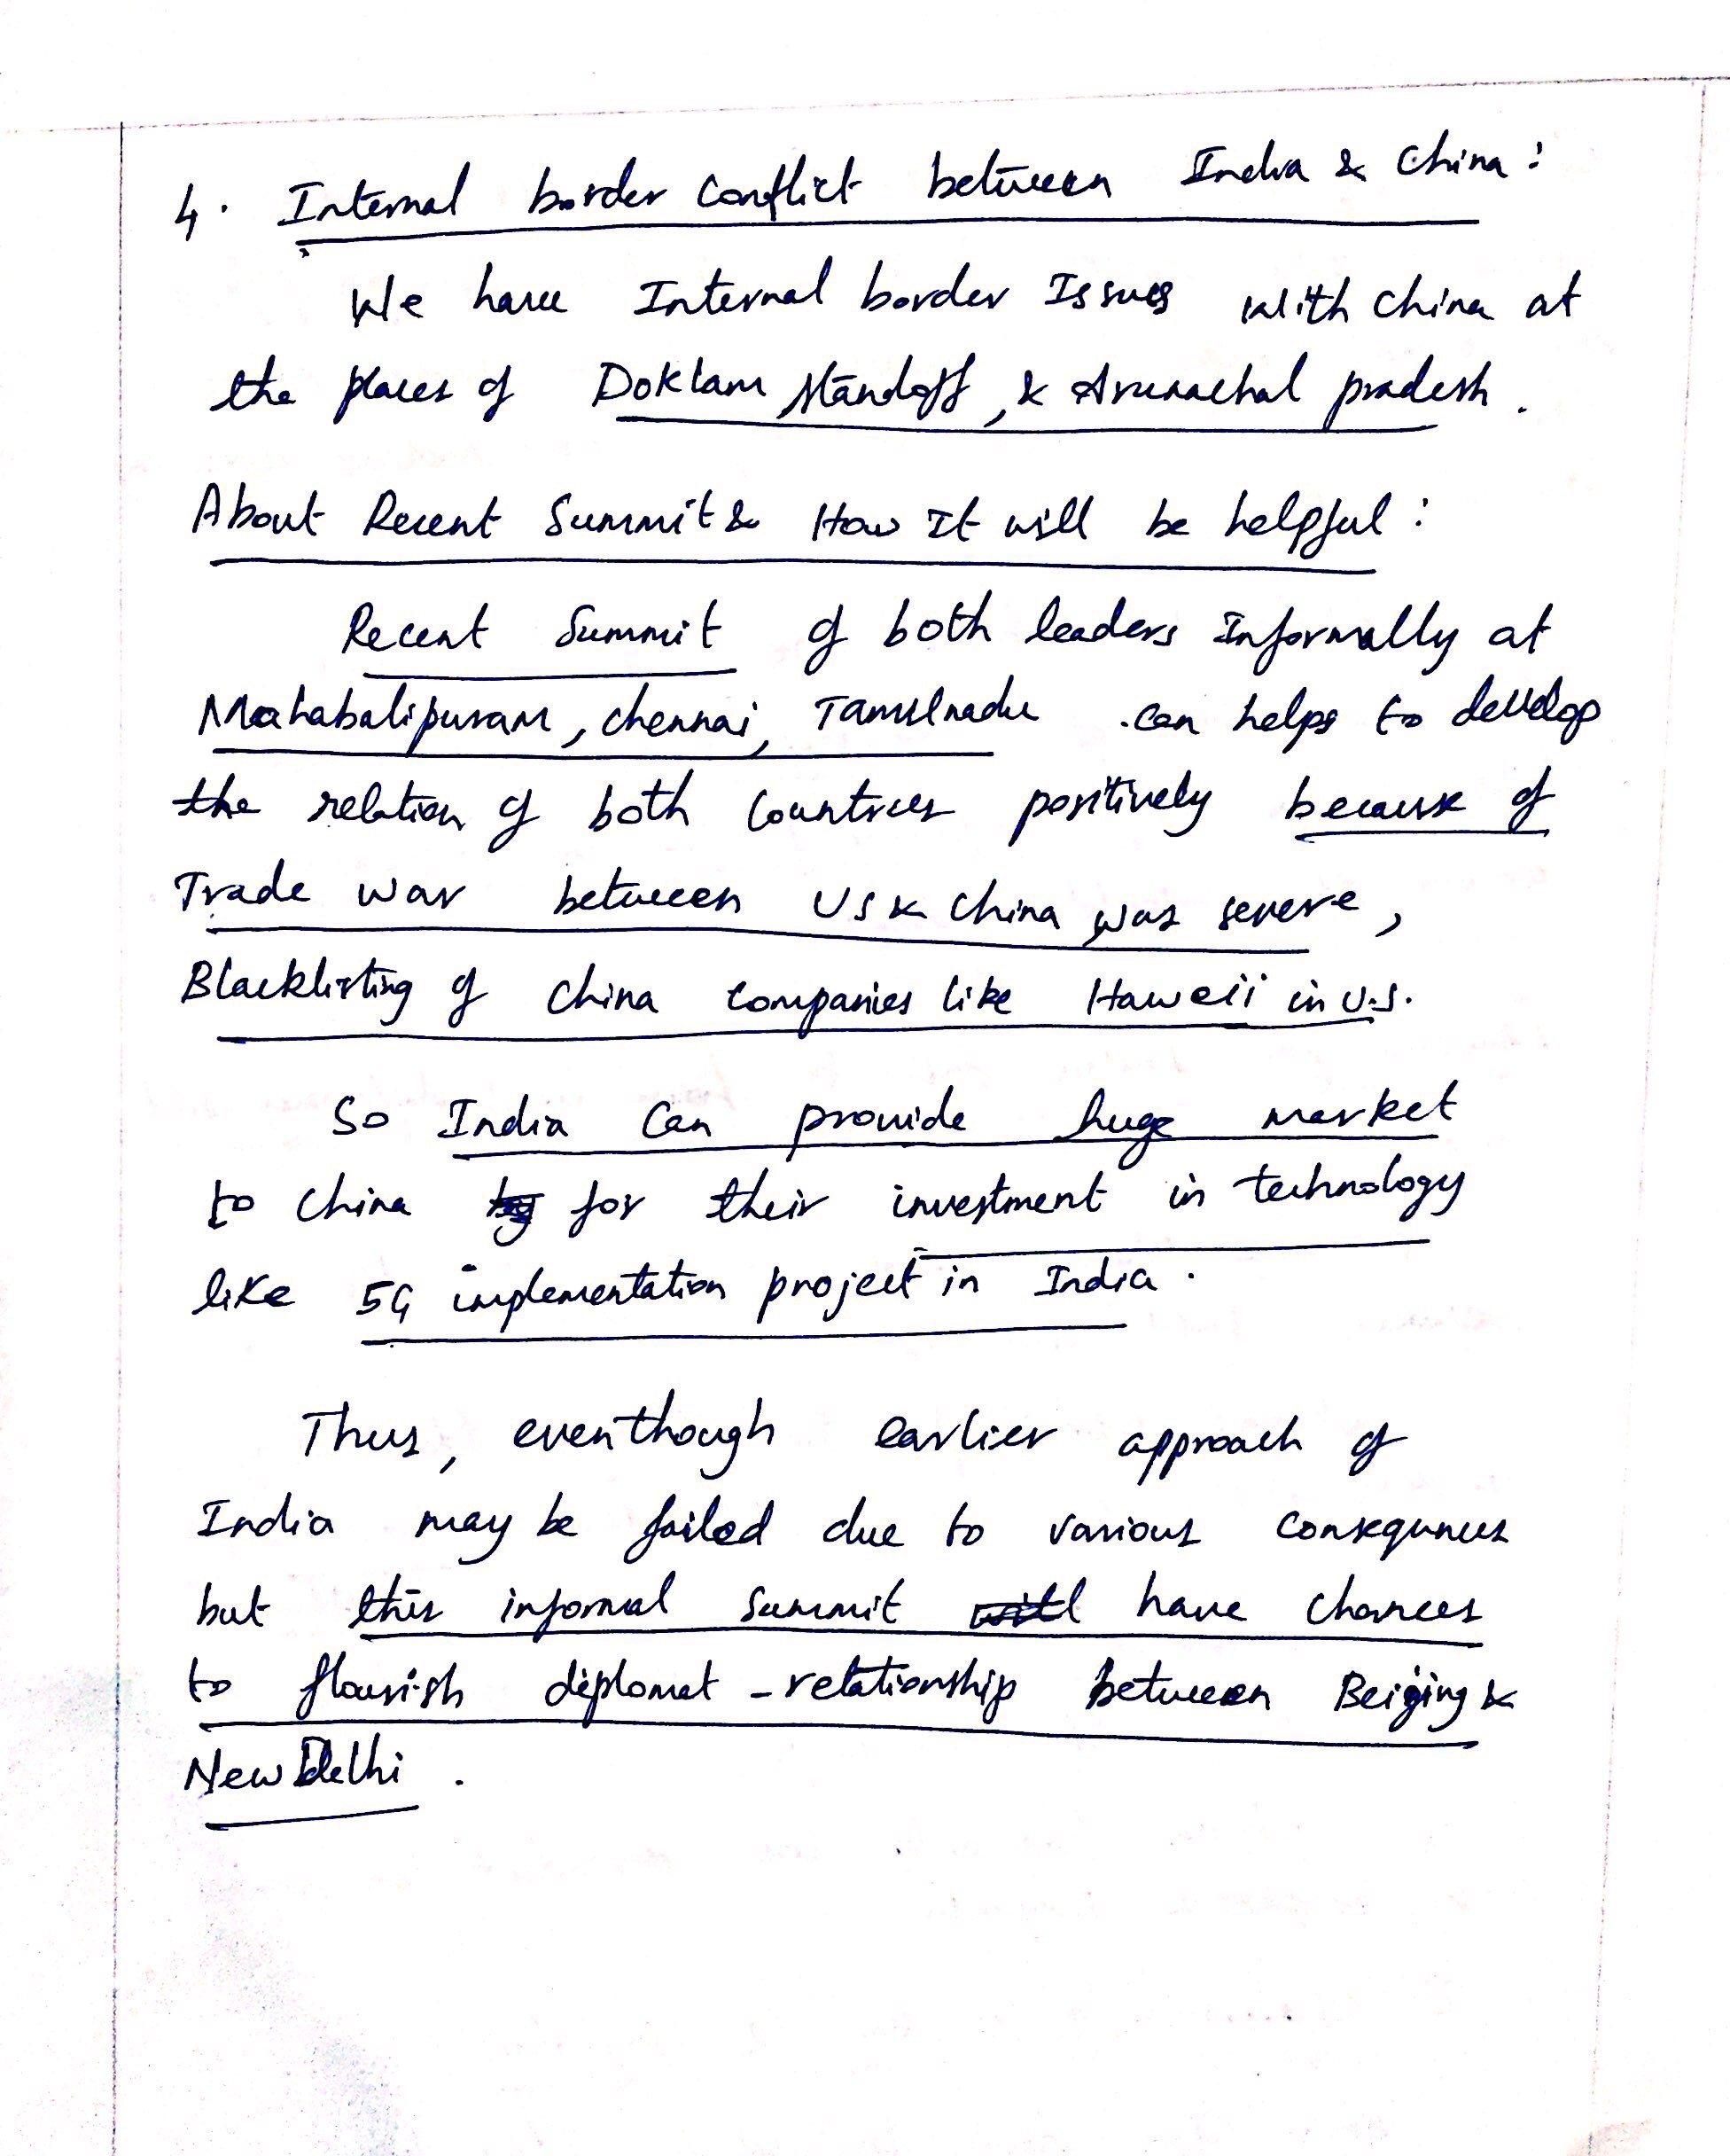 4. Internal border Conflict between India & China:
We have Internal border Issues with China at
the places of Doklam Standoff, & Arunachal pradesh.
About Recent Summit & How It will be helpful:
Recent Summit of both leaders Informally at
Mahabalipuram, chennai, Tamilnadu can helps to develop
the relation of both Countries positively because of
Trade war between US & China was severe,
Blacklisting of China Companies like Haweii in U.S.
So India Can provide huge market
to China for their investment in technology
like 5G implementation project in India.
Thus, eventhough earlier approach of
India may be failed due to various consequnces
but this informal summit have chances
to flourish diplomat - relationship between Beijing &
New Delhi.